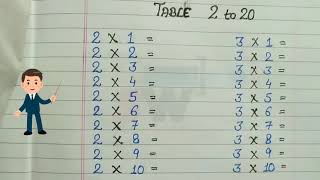 TABLE 2 to 20
2 X 1 =
2 X 2 =
2 X 3 =
2 X 4 =
2 X 5 =
2 X 6 =
2 X 7 =
2 X 8 =
2 X 9 =
2 X 10 =
3 X 1 =
3 X 2 =
3 X 3 =
3 X 4 =
3 X 5 =
3 X 6 =
3 X 7 =
3 X 8 =
3 X 9 =
3 X 10 =